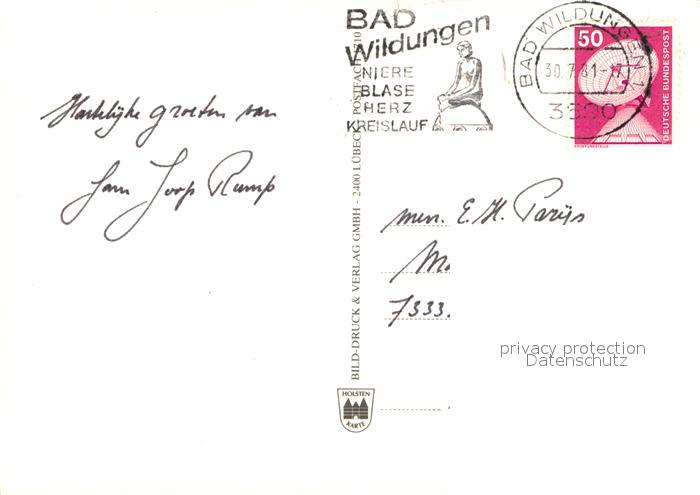 BAD
Wildungen
NIERE
BLASE
HERZ
KREISLAUF
BAD WILDUNGEN 1
30.7.81-17
3590
50
DEUTSCHE BUNDESPOST
ERDEFUNKSTELLE
Hartelijke groeten van
fam Joop Ramp
BILD-DRUCK & VERLAG GMBH - 2400 LÜBECK - POSTFACH 210
men. E.H. Parijs
M.
7333.
privacy protection
Datenschutz
HOLSTEN
KARTE